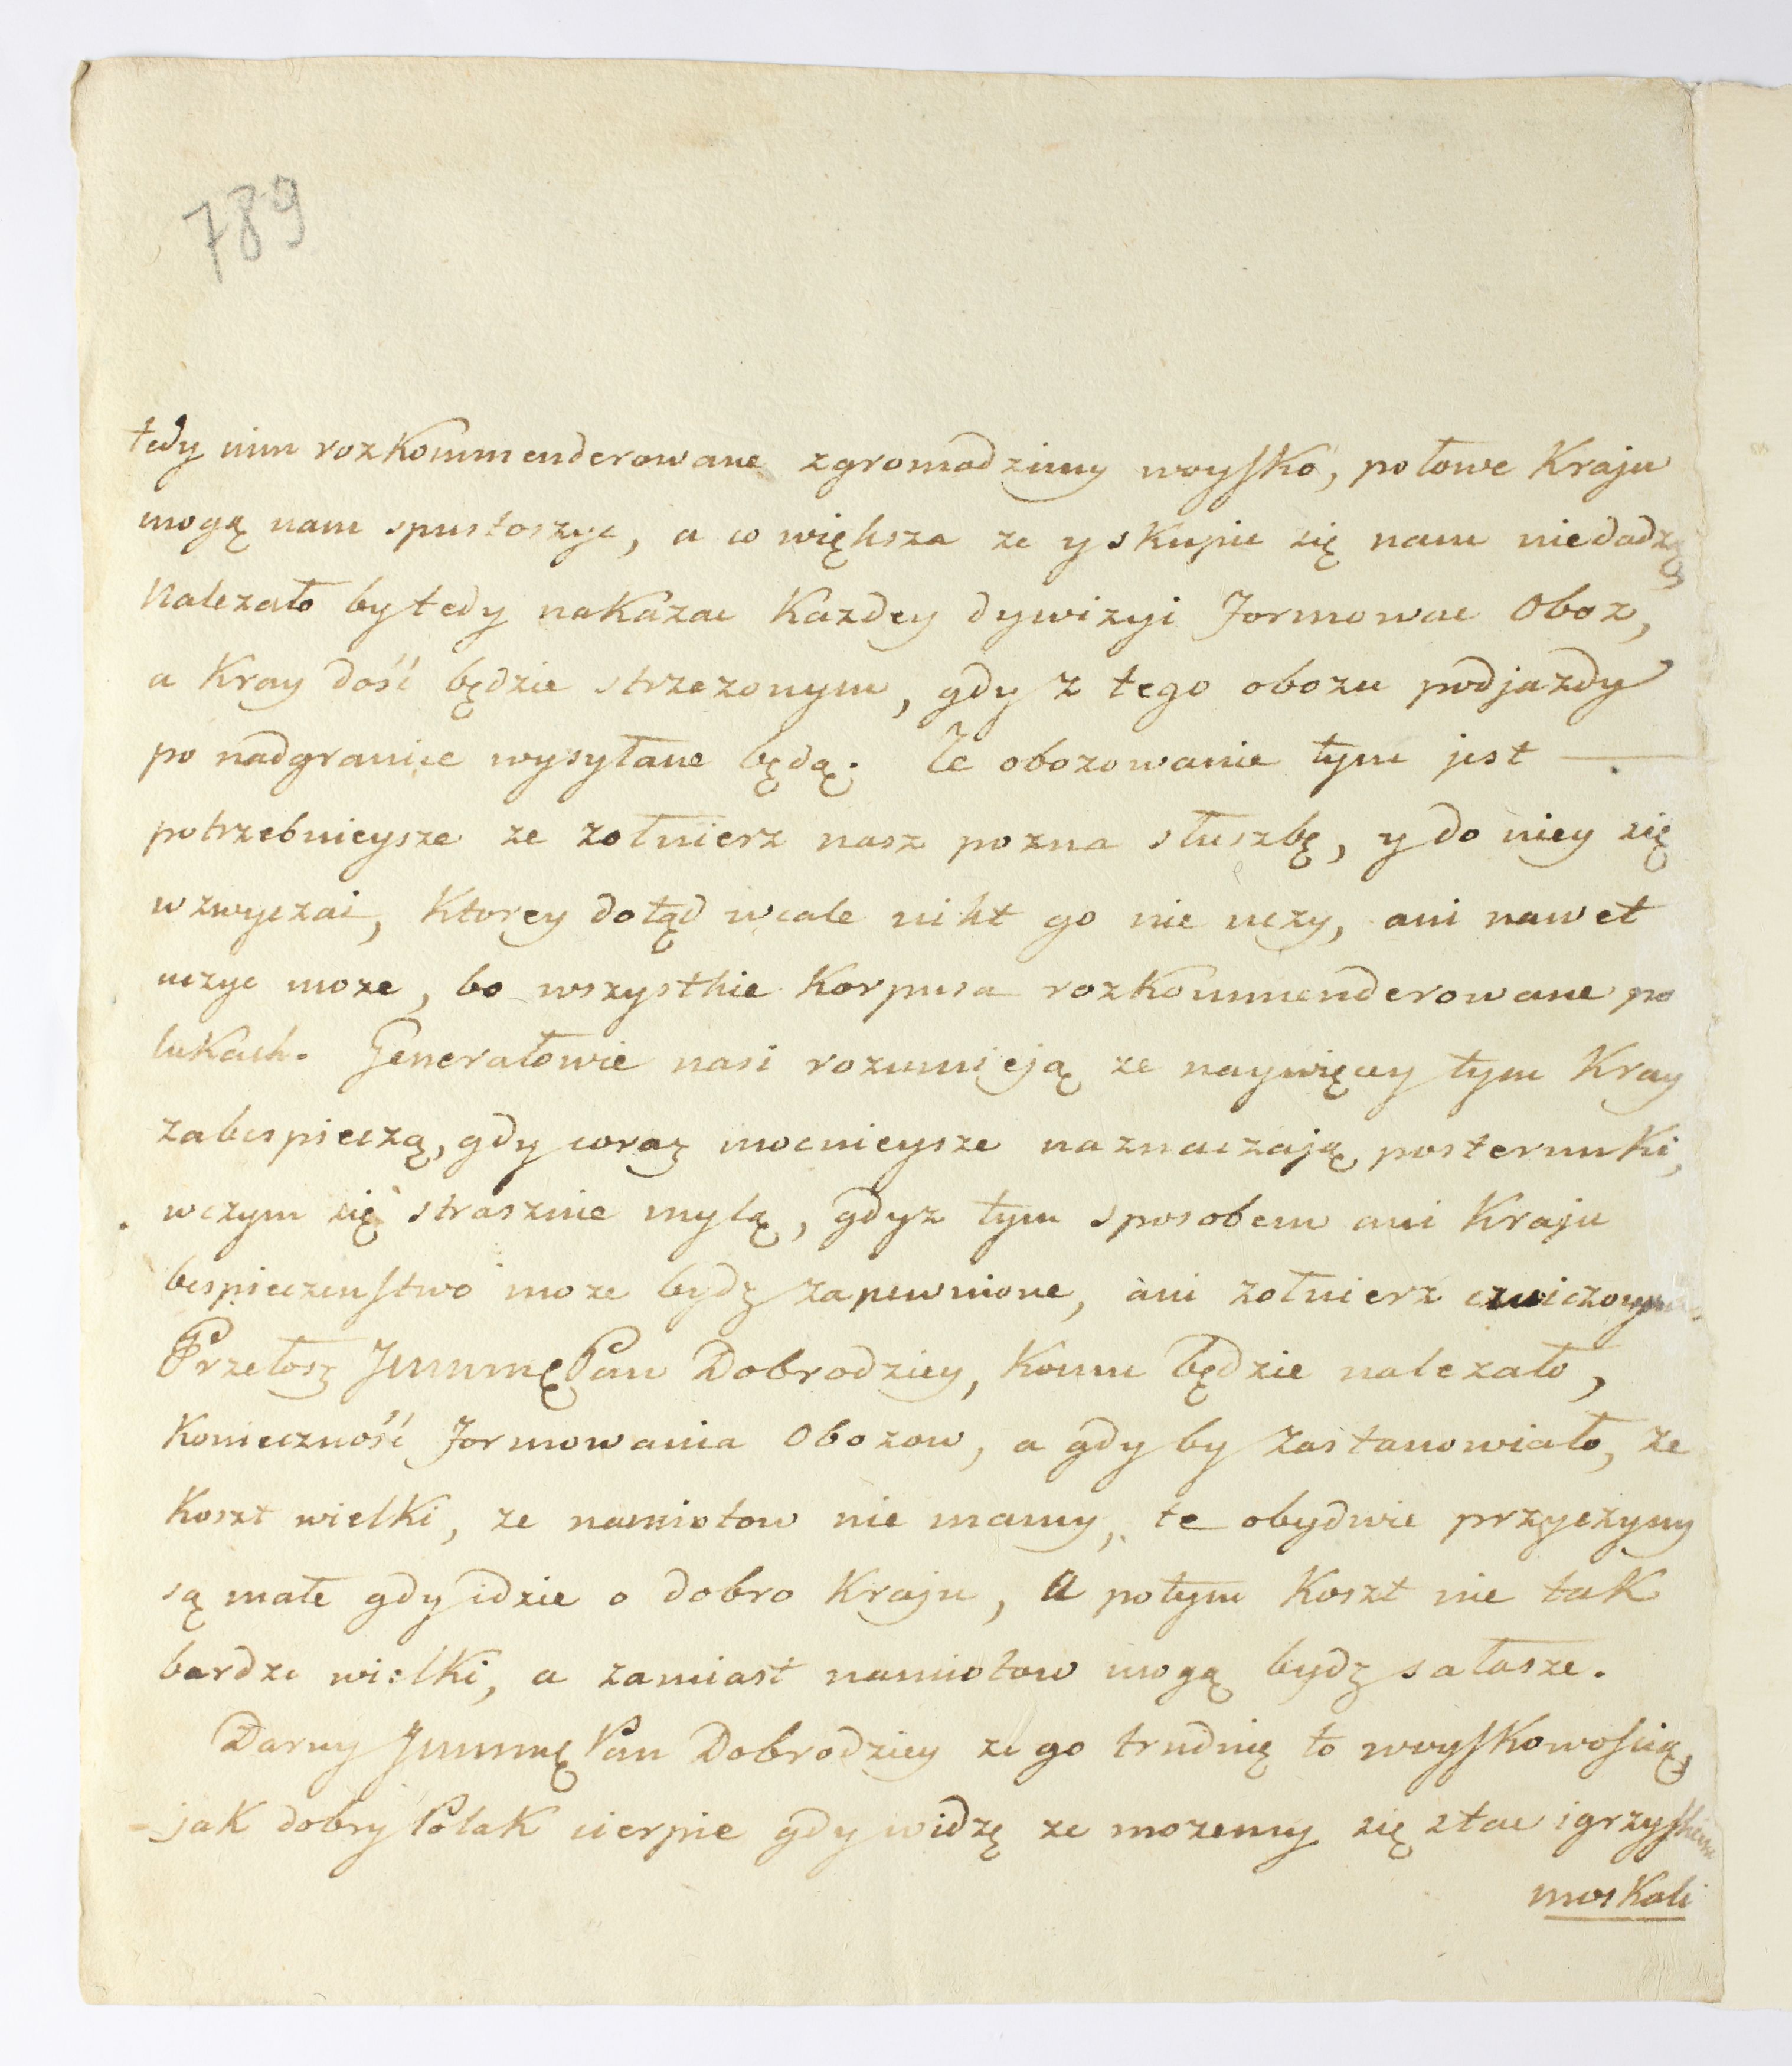 789
tedy nim rozkommenderowane zgromadzimy woysko, połowe Kraju
mogą nam spustoszyc, a co większa ze y skupic się nam niedadzą
Nalezało by tedy nakazac Kazdey dywizyi formowac Oboz,
a Kray dość będzie strzezonym, gdy z tego obozu podjazdy
po nadgranice wysyłane będą. Te obozowanie tym jest —
potrzebnieysze ze zołnierz nasz pozna słuszbę, y do niey się
wzwyczai, Ktorey dotąd wcale nikt go nie uczy, ani nawet
uczyc moze, bo wszystkie Korpusa rozkommenderowane po
lukach. Generałowie nasi rozumieją ze naywięcey tym Kray
zabespieczą, gdy coraz mocnieysze naznaczają posterunki,
wczym się strasznie mylą, gdyz tym sposobem ani Kraju
bespieczenstwo moze bydz zapewnione, ani zołnierz czwiczonym
Przełosz Jmmmę Pan Dobrodziey, Komu będzie nalezało,
Konieczność formowania Obozow, a gdy by zastanowiało, ze
Koszt wielki, ze namiotow nie mamy, te obydwie przyczyny
są małe gdy idzie o dobro Kraju, a potym Koszt nie tak
bardzo wielki, a zamiast namiotow mogą bydz sałasze.
Daruy Jmmmę Pan Dobrodziey ze go trudnię to woyskowością,
jak dobry Polak cierpie gdy widzę ze mozemy się stac igrzyskiem
moskali